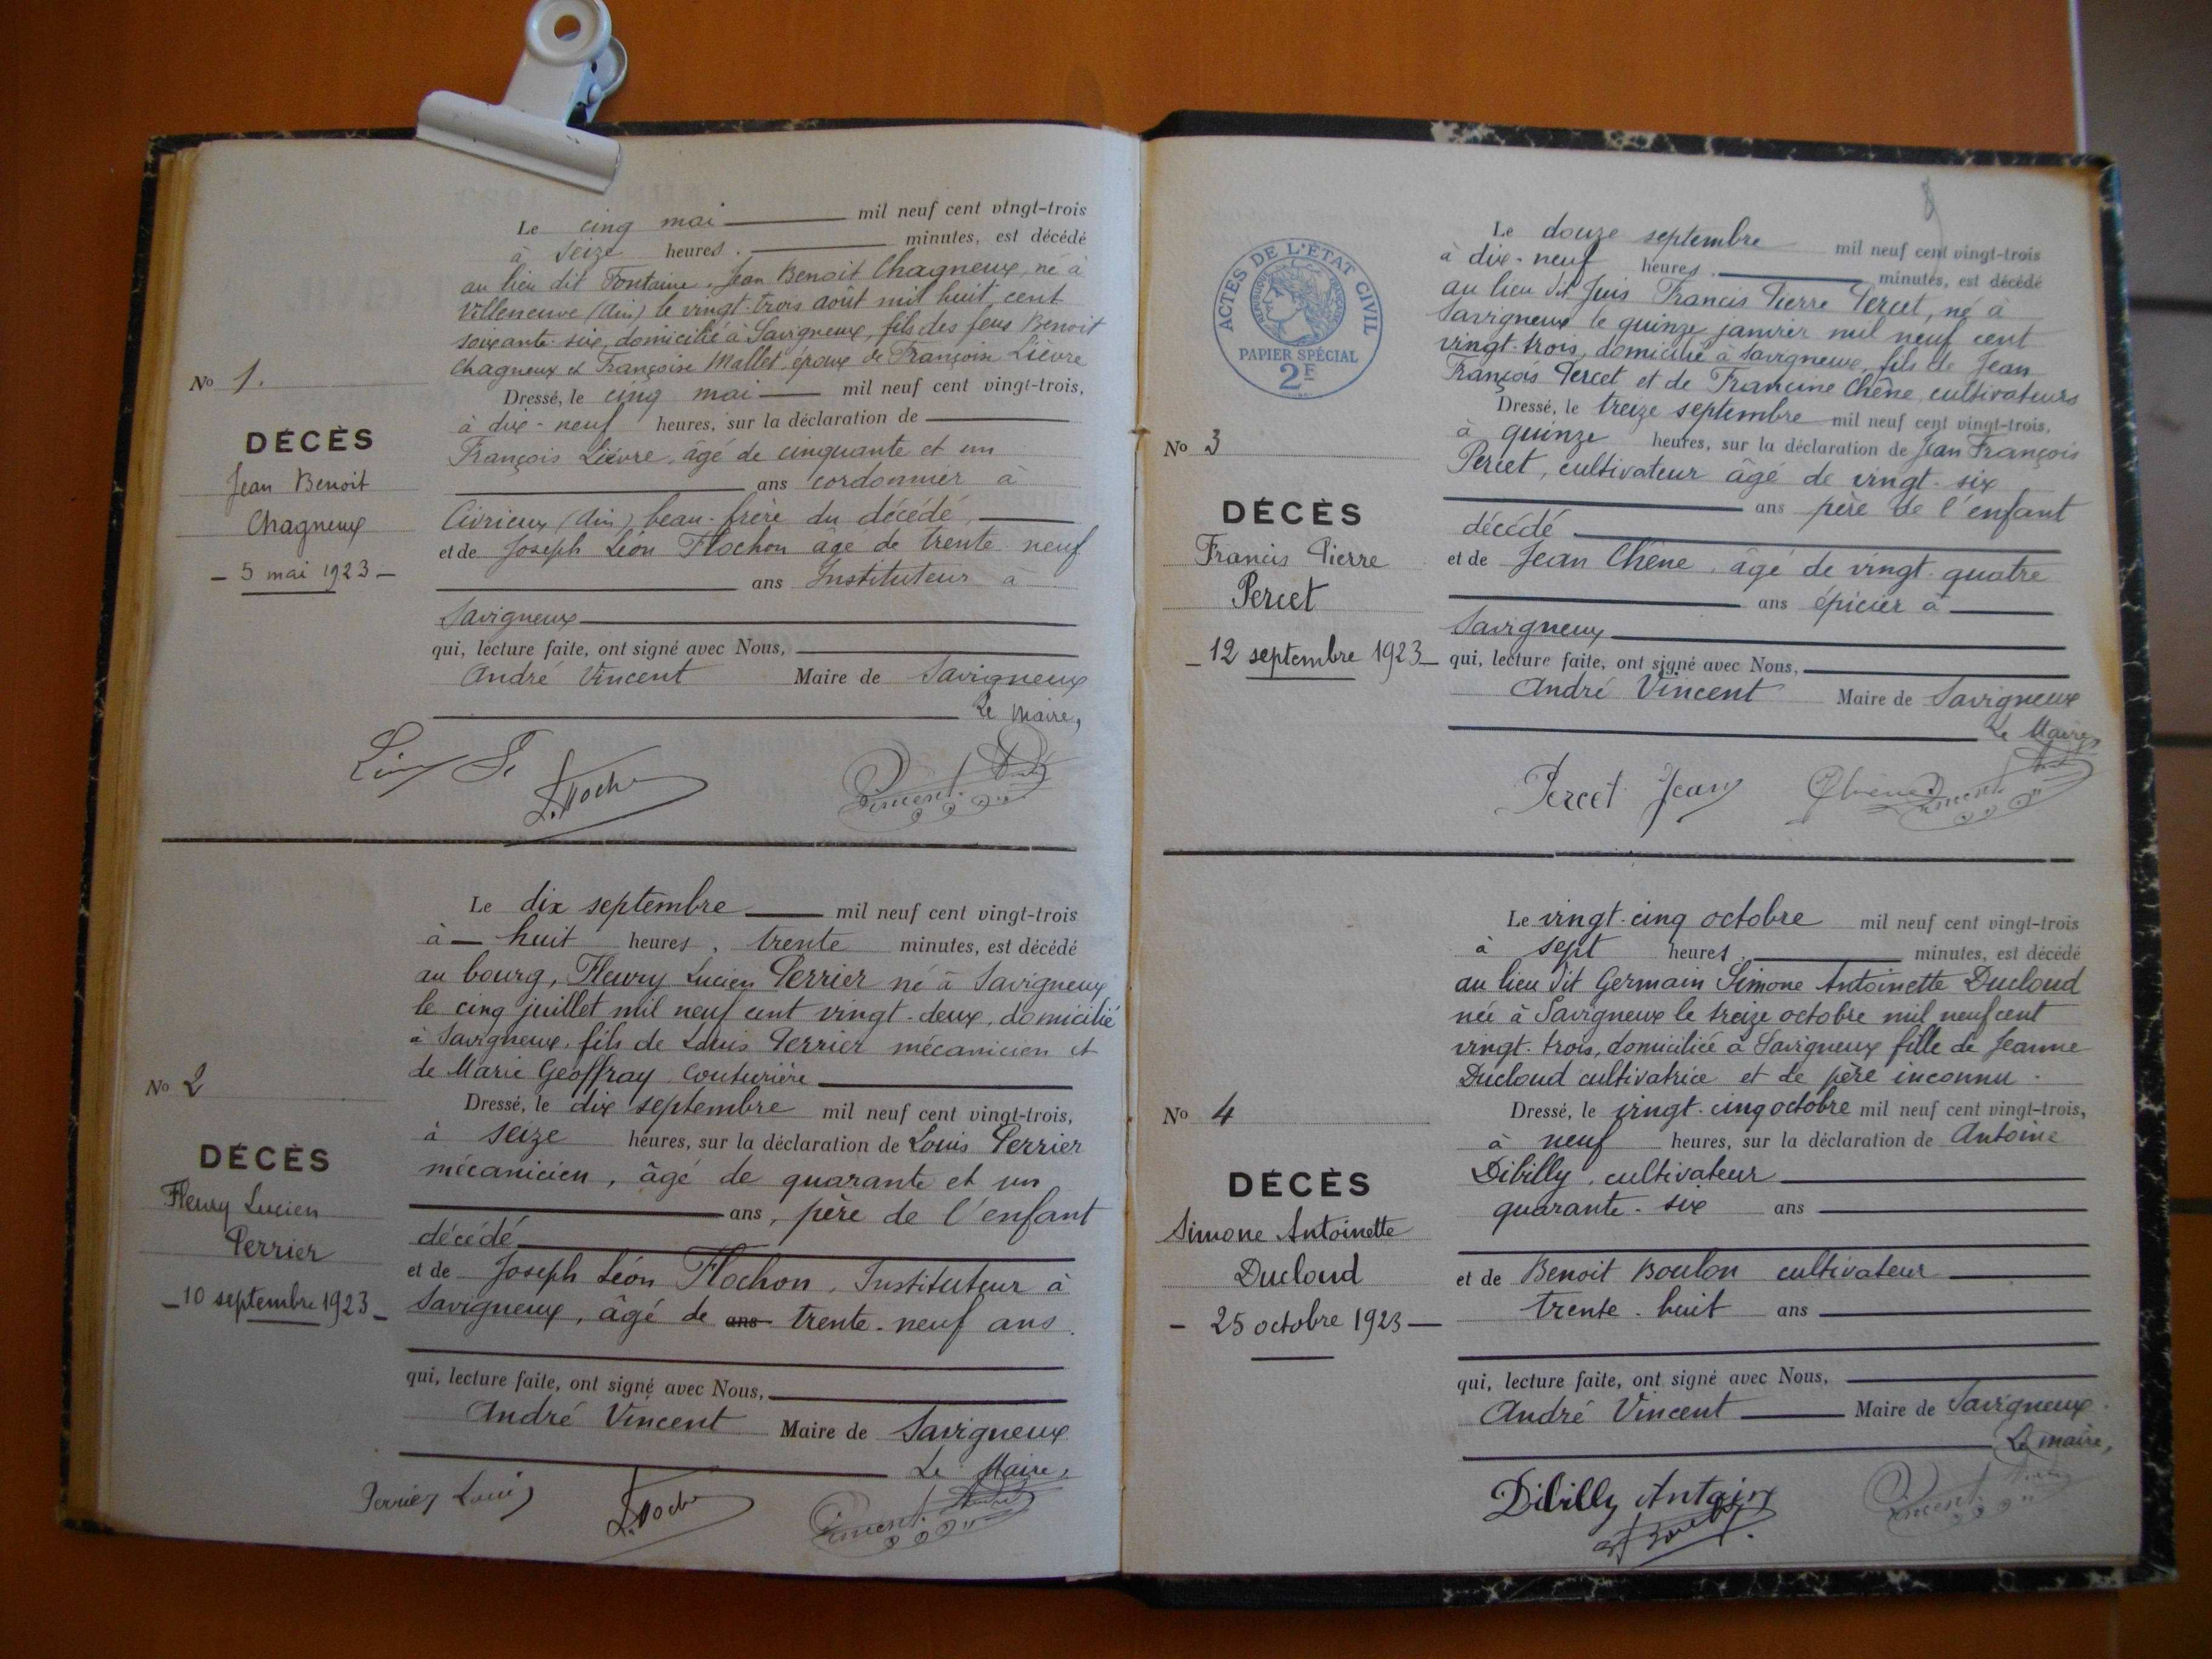 Le cinq mai mil neuf cent vingt-trois
à seize heures. minutes, est décédé
au lieu dit Fontaine, Jean Benoit Chagneux, né à
Villeneuve (Ain) le vingt-trois août mil huit cent
soixante-six, domicilié à Savigneux, fils des feus Benoit
Chagneux et Françoise Mallet, époux de Françoise Lièvre
No 1.
Dressé, le cinq mai mil neuf cent vingt-trois,
à dix-neuf heures, sur la déclaration de
DÉCÈS
François Lièvre, âgé de cinquante et un
Jean Benoit
ans cordonnier à
Chagneux
Civrieux (Ain), beau-frère du décédé,
et de Joseph Léon Flochon âgé de trente neuf
— 5 mai 1923 —
ans Instituteur à
Savigneux
qui, lecture faite, ont signé avec Nous,
André Vincent Maire de Savigneux
Le Maire,
L. Floch
Vincent
Le dix septembre mil neuf cent vingt-trois
à — huit heures, trente minutes, est décédé
au bourg, Fleury Lucien Perrier né à Savigneux
le cinq juillet mil neuf cent vingt-deux, domicilié
à Savigneux, fils de Louis Perrier mécanicien et
de Marie Geoffray, couturière
No 2
Dressé, le dix septembre mil neuf cent vingt-trois,
à seize heures, sur la déclaration de Louis Perrier
DÉCÈS
mécanicien, âgé de quarante et un
Fleury Lucien
ans, père de l'enfant
Perrier
décédé
et de Joseph Léon Flochon, Instituteur à
— 10 septembre 1923 —
Savigneux, âgé de ans trente-neuf ans.
qui, lecture faite, ont signé avec Nous,
André Vincent Maire de Savigneux
Le Maire,
Perrier Louis
L. Floch
Vincent
ACTES DE L'ÉTAT CIVIL
PAPIER SPÉCIAL
2F
Le douze septembre mil neuf cent vingt-trois
à dix-neuf heures. minutes, est décédé
au lieu dit Juis Francis Pierre Percet, né à
Savigneux le quinze janvier mil neuf cent
vingt-trois, domicilié à Savigneux, fils de Jean
François Percet et de Francine Chêne, cultivateurs
Dressé, le treize septembre mil neuf cent vingt-trois,
No 3
à quinze heures, sur la déclaration de Jean François
Percet, cultivateur âgé de vingt-six
DÉCÈS
ans père de l'enfant
décédé
Francis Pierre
et de Jean Chêne, âgé de vingt-quatre
Percet
ans épicier à
Savigneux
— 12 septembre 1923 —
qui, lecture faite, ont signé avec Nous,
André Vincent Maire de Savigneux
Le Maire,
Percet Jean
Chêne
Vincent
Le vingt-cinq octobre mil neuf cent vingt-trois
à sept heures. minutes, est décédé
au lieu dit Germain Simone Antoinette Ducloud
née à Savigneux le treize octobre mil neuf cent
vingt-trois, domiciliée à Savigneux fille de Jeanne
Ducloud cultivatrice et de père inconnu.
No 4
Dressé, le vingt-cinq octobre mil neuf cent vingt-trois,
à neuf heures, sur la déclaration de Antoine
DÉCÈS
Dibilly, cultivateur
Simone Antoinette
quarante-six ans
Ducloud
et de Benoit Boulon cultivateur
— 25 octobre 1923 —
trente-huit ans
qui, lecture faite, ont signé avec Nous,
André Vincent Maire de Savigneux.
Le maire,
Dibilly Antoine
Vincent